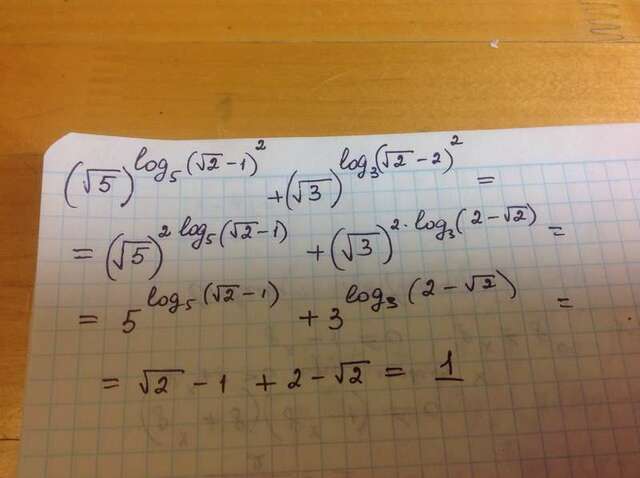 (√5)^log₅(√2-1)² + (√3)^log₃(√2-2)² =
= (√5)^2 log₅(√2-1) + (√3)^2·log₃(2-√2) =
= 5^log₅(√2-1) + 3^log₃(2-√2) =
= √2 - 1 + 2 - √2 = 1